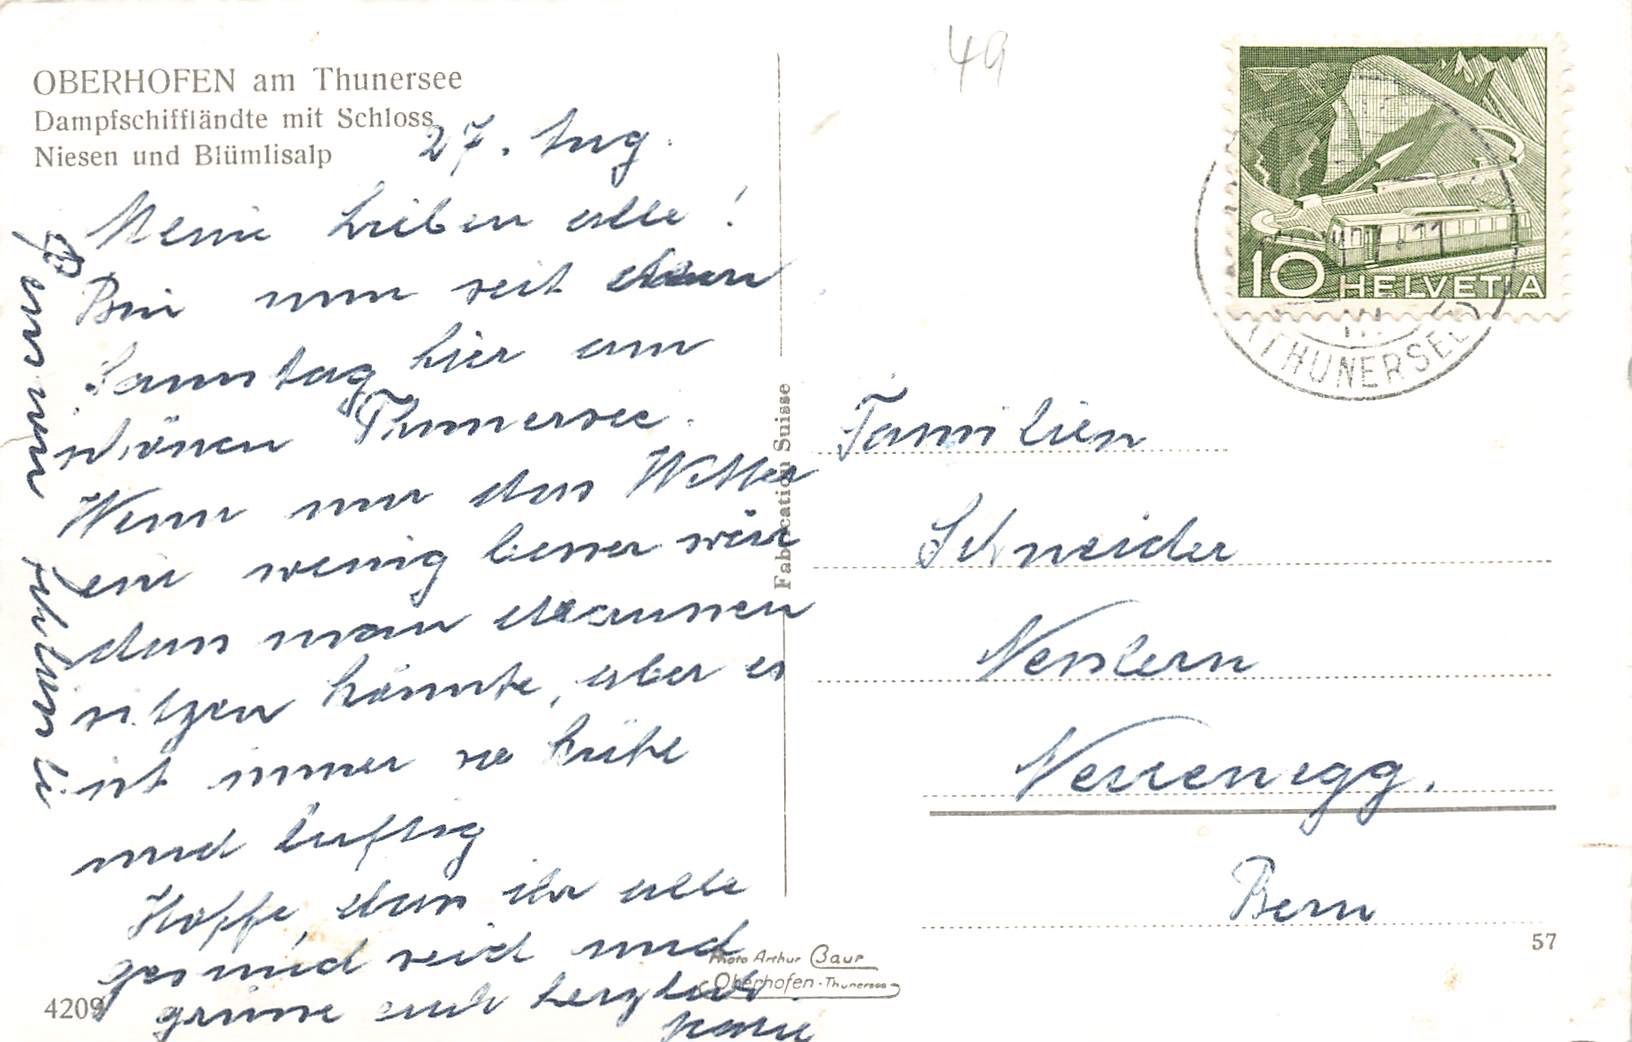 OBERHOFEN am Thunersee
Dampfschiffländte mit Schloss
Niesen und Blümlisalp
27. Aug.
Meine Lieben alle!
Bin nun seit dem
Samstag hier am
schönen Thunersee.
Wenn nur das Wetter
ein wenig besser wär
dass man draussen
sitzen könnte, aber es
ist immer so kühl
und luftig
Hoffe, dass ihr alle
gesund seid und
grüsse euch herzlich.
4209
Fabrication Suisse
Photo Arthur Baur
Oberhofen-Thunersee
49
10 HELVETIA
THUNERSEE
Familien
Schneider
Nesslern
Neuenegg.
Bern
57